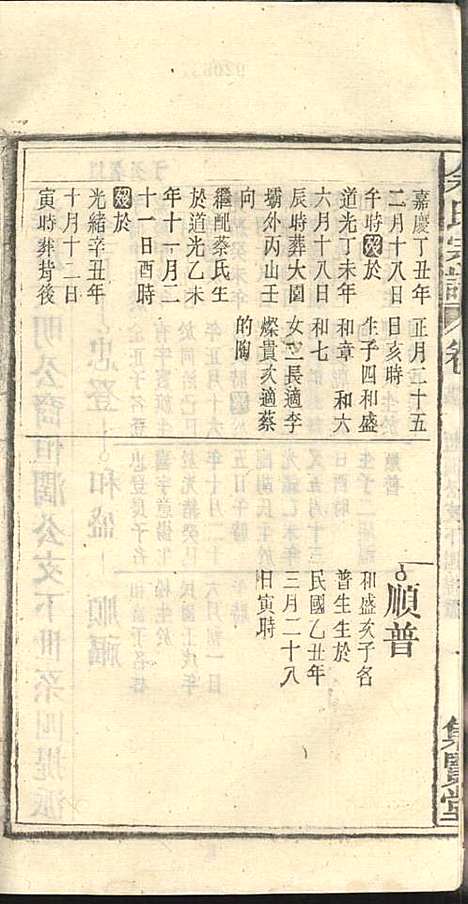 余氏宗譜
卷
集賢堂
嘉慶丁丑年
二月十八日
午時歿於
道光丁未年
六月十八日
辰時葬大園
壩外丙山壬
向
繼配蔡氏生
於道光乙未
年十一月二
十一日酉時
歿於
光緒辛丑年
十月十二日
寅時葬背後
正月二十五
日亥時
生子四和盛
和章 和六
和七
女二長適李
燦貴次適蔡
的陶
順普
和盛次子名
普生生於
民國乙丑年
三月二十八
日寅時